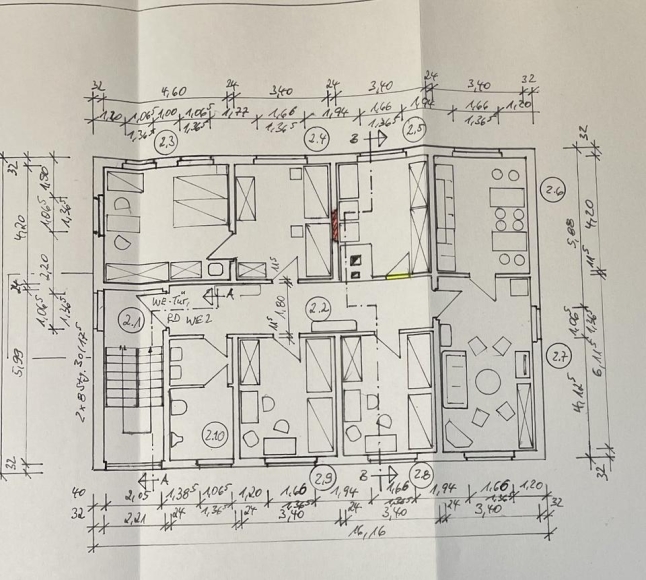 32 4,60 24 3,40 24 3,40 24 3,40 32
1,20 1,06⁵ 1,00 1,06⁵ 1,77 1,66 1,94 1,66 1,94 1,66 1,20
1,36⁵ 1,36⁵ 1,36⁵ 1,36⁵ 1,36⁵
2.3 2.4 B 2.5
2.6
32
4,20
24
5,99
32
1,90
1,06⁵
1,36⁵
2,20
1,06⁵
1,36⁵
2 x 8 Stg. 30/17⁵
32
5,88
4,20
11⁵
1,06⁵
1,36⁵
4,12⁵
6,11⁵
32
11⁵
A
WE-Tür,
RD WE2
2.1
1,80
2.2
11⁵
2.7
2.10
A 2.9 B 2.8
40 2,05 1,38⁵ 1,06⁵ 1,20 1,66 1,94 1,66 1,94 1,66 1,20
1,36⁵ 1,36⁵ 1,36⁵ 1,36⁵
32 2,21 24 24 3,40 24 3,40 24 3,40 32
16,16